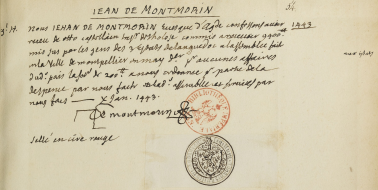 IEAN DE MONTMORIN
54
3.H. NOUS IEHAN DE MONTMORIN Euesque d'Agde confessons auoir
1443
receu de otto castellain tres. de tholose commis a receuoir
mis sus par les gens des 3 estats de languedoc a l'assemblee fait
en la ville de montpellier en may der. pr aucunes affaires
dud. pais la so. de 200l a nous ordonnee pr partie de la
despence par nous faite a lad. assemblee
nous fais — X Jan. 1443.
De montmorin
BIBLIOTHECA
Sellé en cire rouge